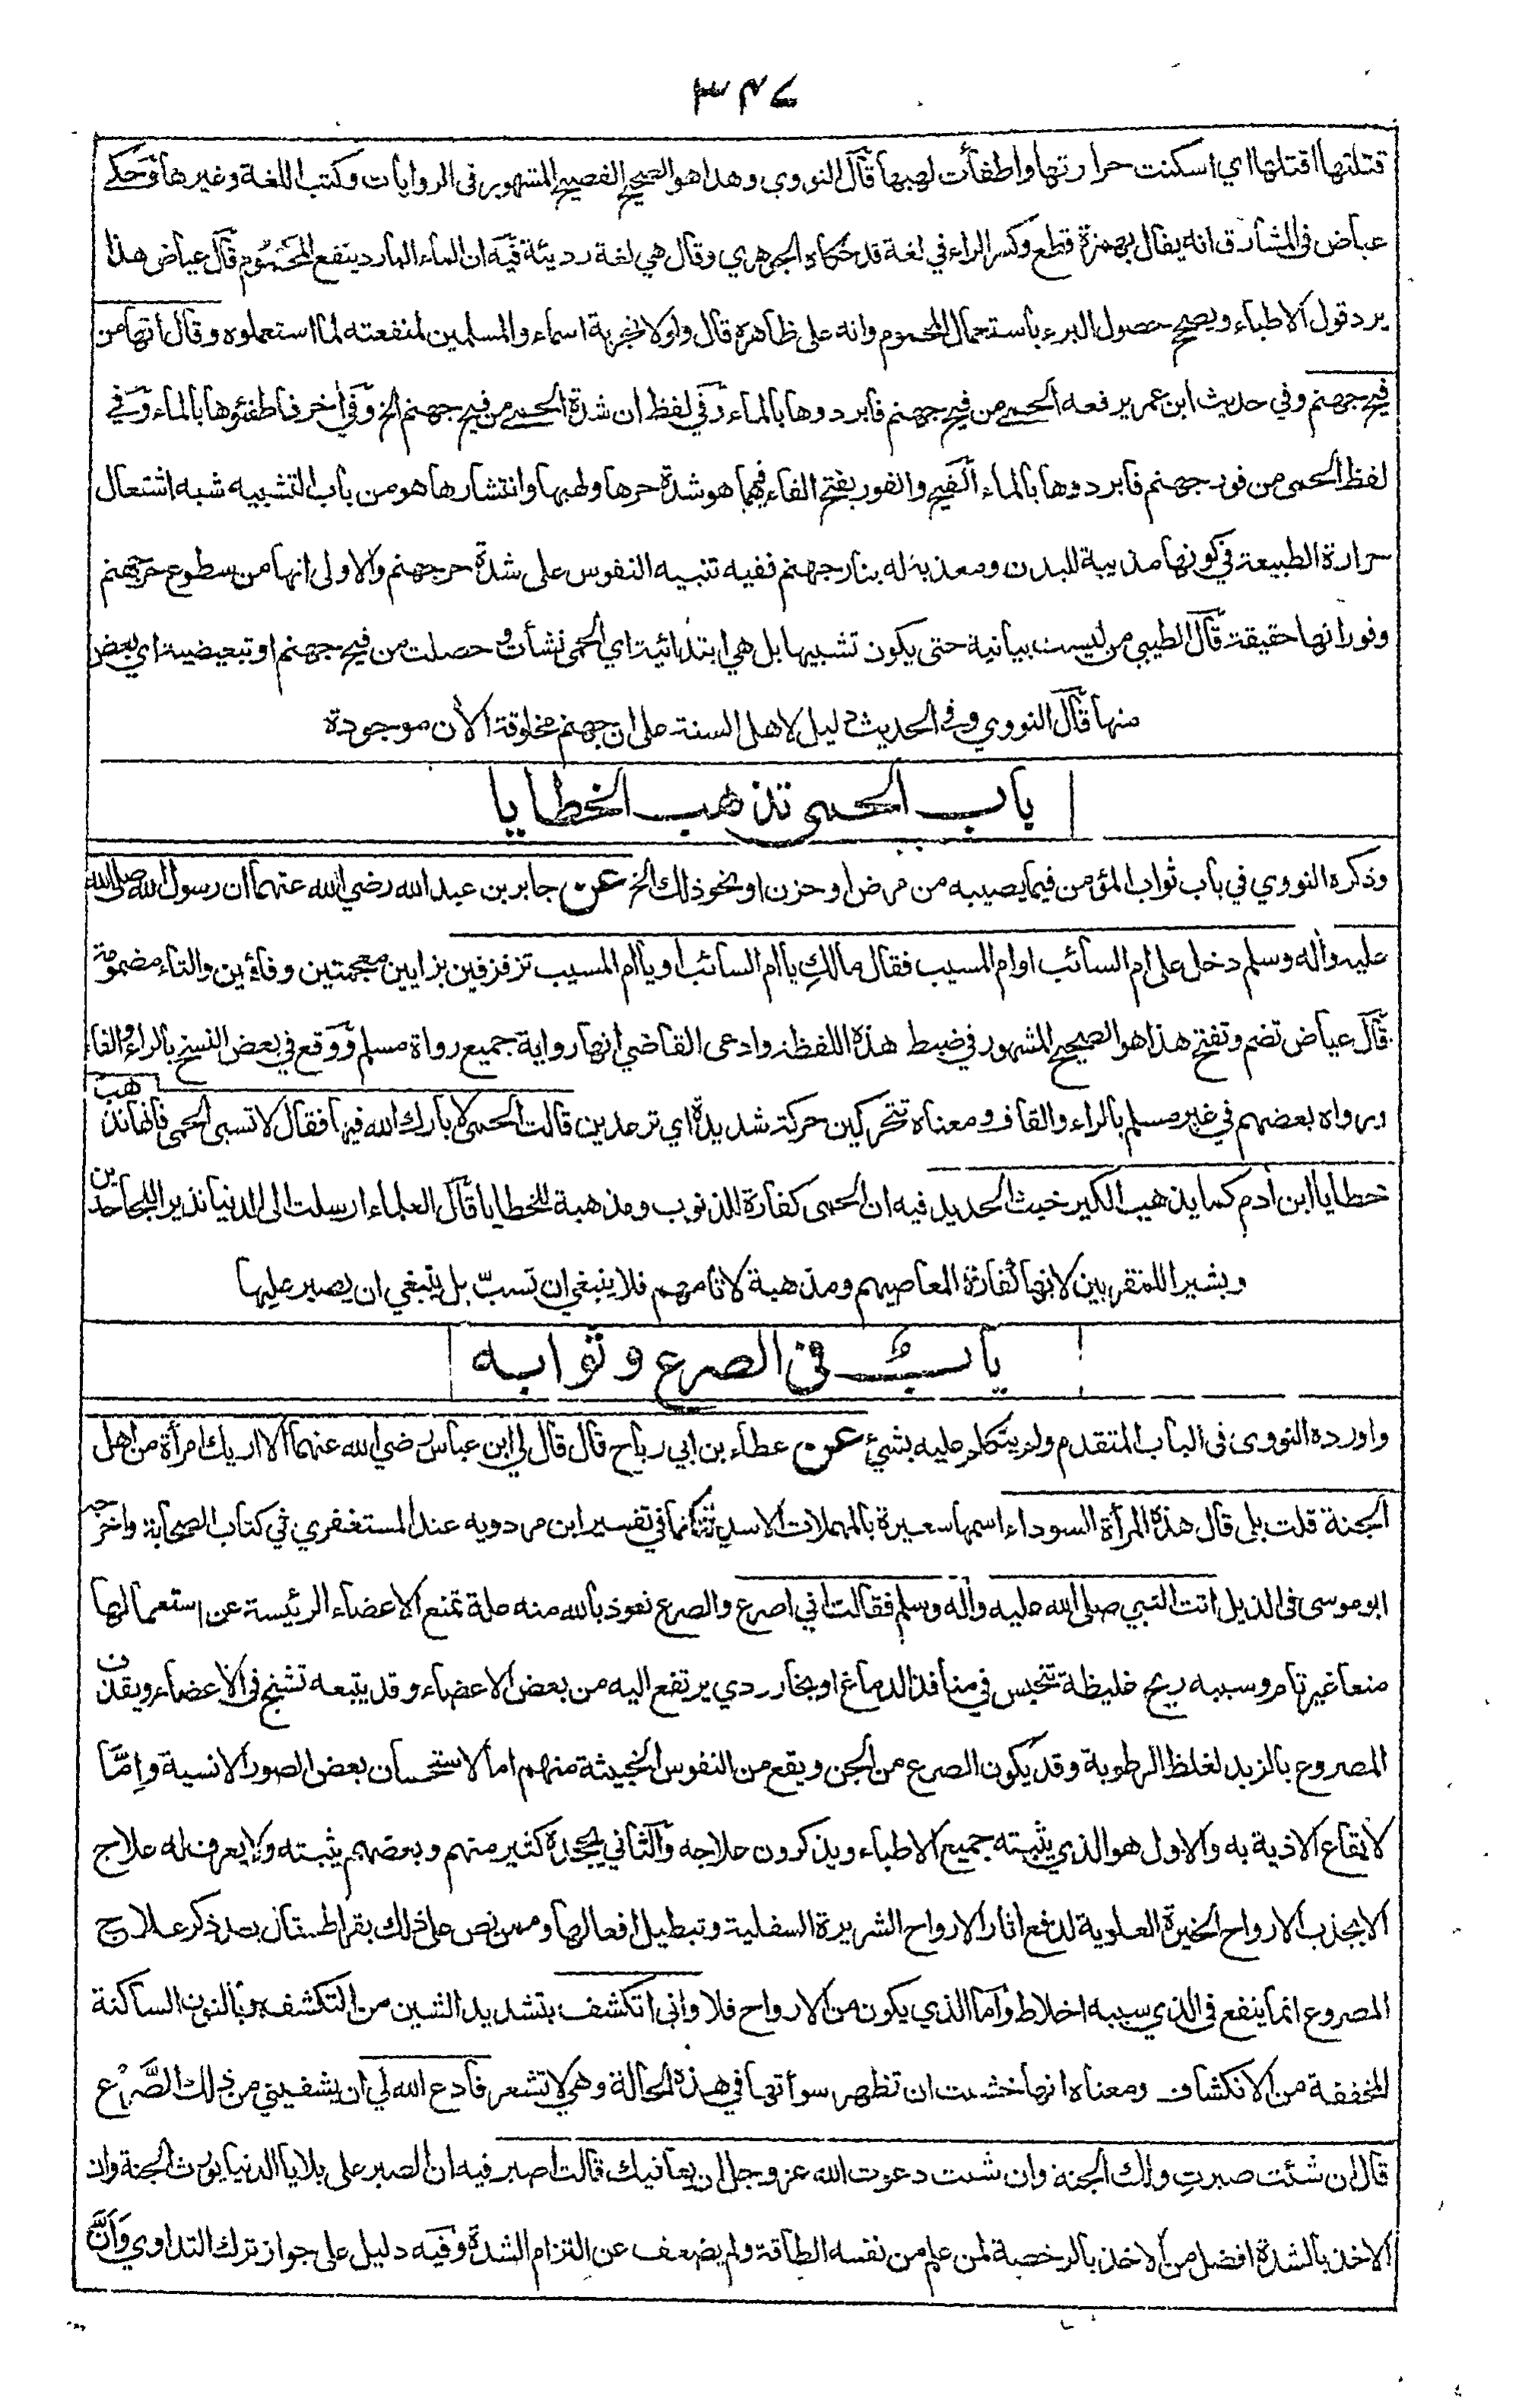 ٣٤٧
قتلتها اقتلها اي اسكنت حرارتها واطفأت لهبها قال النووي وهذا هو الصحيح الفصيح المشهور في الروايات وكتب اللغة وغيرها وحكى
عياض في المشارق انه يقال بهمزة قطع وكسر الراء في لغة قد حكاه الجوهري وقال هي لغة رديئة فيه ان الماء البارد ينفع المحموم قال عياض هذا
يرد قول الاطباء ويصحح حصول البرء باستعمال المحموم وانه على ظاهره قال ولولا تجربة اسماء والمسلمين لمنفعته لما استعملوه وقال انها من
فيح جهنم وفي حديث ابن عمر يرفعه الحمى من فيح جهنم فابردوها بالماء وفي لفظ ان شدة الحمى من فيح جهنم الخ وفي اخر فاطفئوها بالماء وفي
لفظ الحمى من فور جهنم فابردوها بالماء الفيح والفور بفتح الفاء فيهما هو شدة حرها ولهبها وانتشارها هو من باب التشبيه شبه اشتعال
حرارة الطبيعة في كونها مذيبة للبدن ومعذبة له بنار جهنم ففيه تنبيه النفوس على شدة حر جهنم والاولى انها من سطوع حر جهنم
وفورانها حقيقة قال الطيبي من ليست بيانية حتى يكون تشبيها بل هي ابتدائية اي الحمى نشأت و حصلت من فيح جهنم او تبعيضية اي بعض
منها قال النووي وفي الحديث دليل لاهل السنة على ان جهنم مخلوقة الأن موجودة
باب الحمى تذهب الخطايا
وذكره النووي في باب ثواب المؤمن فيما يصيبه من مرض او حزن او نحو ذلك الخ عن جابر بن عبد الله رضي الله عنهما ان رسول الله صلى الله
عليه وأله وسلم دخل على ام السائب او ام المسيب فقال مالكِ يا ام السائب او يا ام المسيب تزفزفين بزايين معجمتين وفاءين والتاء مضمومة
قال عياض تضم وتفتح هذا هو الصحيح المشهور في ضبط هذه اللفظة وادعى القاضي انها رواية جميع رواة مسلم ووقع في بعض النسخ بالراء والفاء
ورواه بعضهم في غير مسلم بالراء والقاف ومعناه تتحركين حركة شديدة اي ترعدين قالت الحمى لا بارك الله فيها فقال لا تسبى الحمى فانها تذهب
خطايا ابن أدم كما يذهب الكير خبث الحديد فيه ان الحمى كفارة للذنوب ومذهبة للخطايا قال العلماء ارسلت الى الدنيا نذيرا للجاحدين
وبشيرا للمقربين لانها كفارة لمعاصيهم ومذهبة لاثامهم فلا ينبغي ان تسبّ بل ينبغي ان يصبر عليها
باب في الصرع وثوابه
واورده النووى في الباب المتقدم ولم يتكلم عليه بشيئ عن عطاء بن ابي رباح قال قال لي ابن عباس رضي الله عنهما الا اريك امرأة من اهل
الجنة قلت بلى قال هذه المرأة السوداء اسمها سعيرة بالمهملات الاسدية كما في تفسير ابن مردويه عند المستغفري في كتاب الصحابة واخرجه
ابو موسى في الذيل اتت النبي صلى الله عليه وأله وسلم فقالت اني اصرع والصرع نعوذ بالله منه علة تمنع الاعضاء الرئيسة عن استعمالها
منعا غير تام وسببه ريح غليظة تنحبس في منافذ الدماغ او بخار ردي يرتفع اليه من بعض الاعضاء وقد يتبعه تشنج في الاعضاء ويقذف
المصروع بالزبد لغلظ الرطوبة وقد يكون الصرع من الجن ويقع من النفوس الخبيثة منهم اما لاستحسان بعض الصور الانسية وامَّا
لايقاع الاذية به والاول هو الذي يثبته جميع الاطباء ويذكرون علاجه والثاني يجحده كثير منهم وبعضهم يثبته ولا يعرف له علاج
الا بجذب الارواح الخيرة العلوية لدفع اثار الارواح الشريرة السفلية وتبطيل افعالها وممن نص على ذلك بقراط فقال بعد ذكر علاج
المصروع انما ينفع في الذي سببه اخلاط واما الذي يكون من الارواح فلا وانى اتكشف بتشديد الشين من التكشف وبالنون الساكنة
المخففة من الانكشاف ومعناه انها خشيت ان تظهر سوأتها في هذه الحالة وهي لا تشعر فادع الله لي ان يشفيني من ذلك الصَّرْع
قال ان شئت صبرتِ ولك الجنة وان شئت دعوت الله عز وجل ان يعافيك قالت اصبر فيه ان الصبر على بلايا الدنيا يورث الجنة وان
الاخذ بالشدة افضل من الاخذ بالرخصة لمن علم من نفسه الطاقة ولم يضعف عن التزام الشدة وفيه دليل على جواز ترك التداوي وَاَنَّ